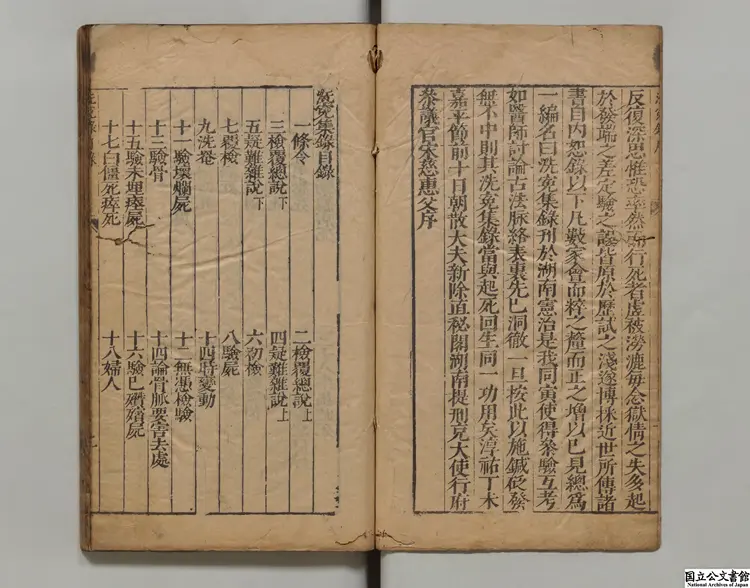 反復深思惟恐率然而行死者虛被澇漉每念獄情之失多起
於發端之差定驗之誤皆原於歷試之淺遂博採近世所傳諸
書自內恕錄以下凡數家會而粹之釐而正之增以已見總爲
一編名曰洗寃集錄刊於湖南憲治是我同寅使得叅驗互考
如醫師討論古法脉絡表裏先已洞徹一旦按此以施鍼砭發
無不中則其洗寃集錄當與起死回生同一功用矣淳祐丁未
嘉平節前十日朝散大夫新除直秘閣湖南提刑克大使行府
叅議官宋慈惠父序
洗寃集錄目錄
一條令 二檢覆總說上
三檢覆總說下 四疑難雜說上
五疑難雜說下 六初檢
七覆檢 八驗屍
九洗罨 十四時變動
十一驗壞爛屍 十二無憑檢驗
十三驗骨 十四論骨脉要害去處
十五驗未埋瘞屍 十六驗已殯殮屍
十七白僵死瘁死 十八婦人
国立公文書館
National Archives of Japan